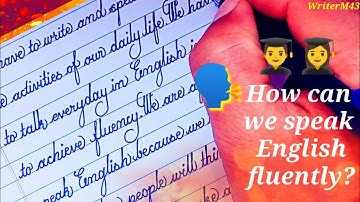 WriterM43
have to write and speak
e activities of our daily life. We have
to talk everyday in English i
to achieve fluency. We are a
speak English because we
people will thi
make a
How can
we speak
English
fluently?